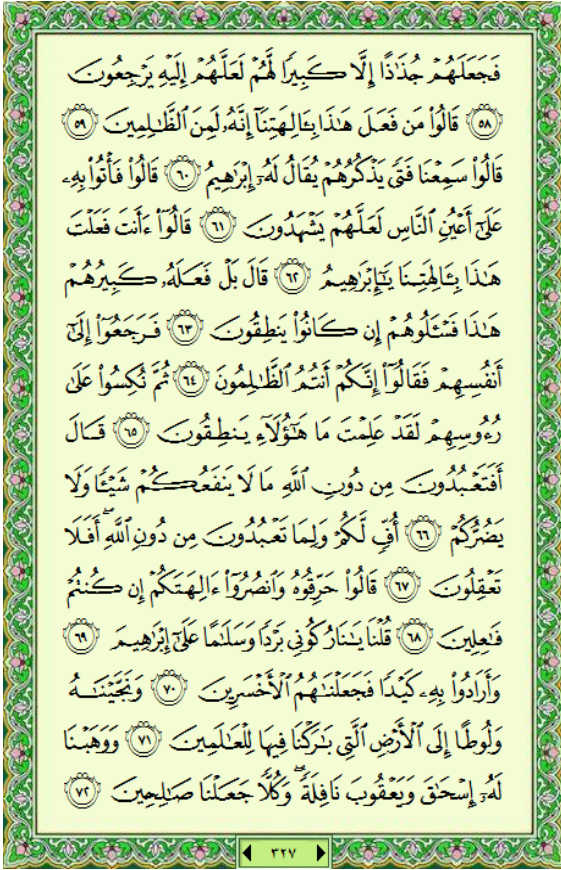 فَجَعَلَهُمْ جُذَٰذًا إِلَّا كَبِيرًا لَّهُمْ لَعَلَّهُمْ إِلَيْهِ يَرْجِعُونَ
﴿٥٨﴾ قَالُوا۟ مَن فَعَلَ هَٰذَا بِـَٔالِهَتِنَآ إِنَّهُۥ لَمِنَ ٱلظَّٰلِمِينَ ﴿٥٩﴾
قَالُوا۟ سَمِعْنَا فَتًى يَذْكُرُهُمْ يُقَالُ لَهُۥٓ إِبْرَٰهِيمُ ﴿٦٠﴾ قَالُوا۟ فَأْتُوا۟ بِهِۦ
عَلَىٰٓ أَعْيُنِ ٱلنَّاسِ لَعَلَّهُمْ يَشْهَدُونَ ﴿٦١﴾ قَالُوٓا۟ ءَأَنتَ فَعَلْتَ
هَٰذَا بِـَٔالِهَتِنَا يَٰٓإِبْرَٰهِيمُ ﴿٦٢﴾ قَالَ بَلْ فَعَلَهُۥ كَبِيرُهُمْ
هَٰذَا فَسْـَٔلُوهُمْ إِن كَانُوا۟ يَنطِقُونَ ﴿٦٣﴾ فَرَجَعُوٓا۟ إِلَىٰٓ
أَنفُسِهِمْ فَقَالُوٓا۟ إِنَّكُمْ أَنتُمُ ٱلظَّٰلِمُونَ ﴿٦٤﴾ ثُمَّ نُكِسُوا۟ عَلَىٰ
رُءُوسِهِمْ لَقَدْ عَلِمْتَ مَا هَٰٓؤُلَآءِ يَنطِقُونَ ﴿٦٥﴾ قَالَ
أَفَتَعْبُدُونَ مِن دُونِ ٱللَّهِ مَا لَا يَنفَعُكُمْ شَيْـًٔا وَلَا
يَضُرُّكُمْ ﴿٦٦﴾ أُفٍّ لَّكُمْ وَلِمَا تَعْبُدُونَ مِن دُونِ ٱللَّهِ ۖ أَفَلَا
تَعْقِلُونَ ﴿٦٧﴾ قَالُوا۟ حَرِّقُوهُ وَٱنصُرُوٓا۟ ءَالِهَتَكُمْ إِن كُنتُمْ
فَٰعِلِينَ ﴿٦٨﴾ قُلْنَا يَٰنَارُ كُونِى بَرْدًا وَسَلَٰمًا عَلَىٰٓ إِبْرَٰهِيمَ ﴿٦٩﴾
وَأَرَادُوا۟ بِهِۦ كَيْدًا فَجَعَلْنَٰهُمُ ٱلْأَخْسَرِينَ ﴿٧٠﴾ وَنَجَّيْنَٰهُ
وَلُوطًا إِلَى ٱلْأَرْضِ ٱلَّتِى بَٰرَكْنَا فِيهَا لِلْعَٰلَمِينَ ﴿٧١﴾ وَوَهَبْنَا
لَهُۥٓ إِسْحَٰقَ وَيَعْقُوبَ نَافِلَةً ۖ وَكُلًّا جَعَلْنَا صَٰلِحِينَ ﴿٧٢﴾
٣٢٧